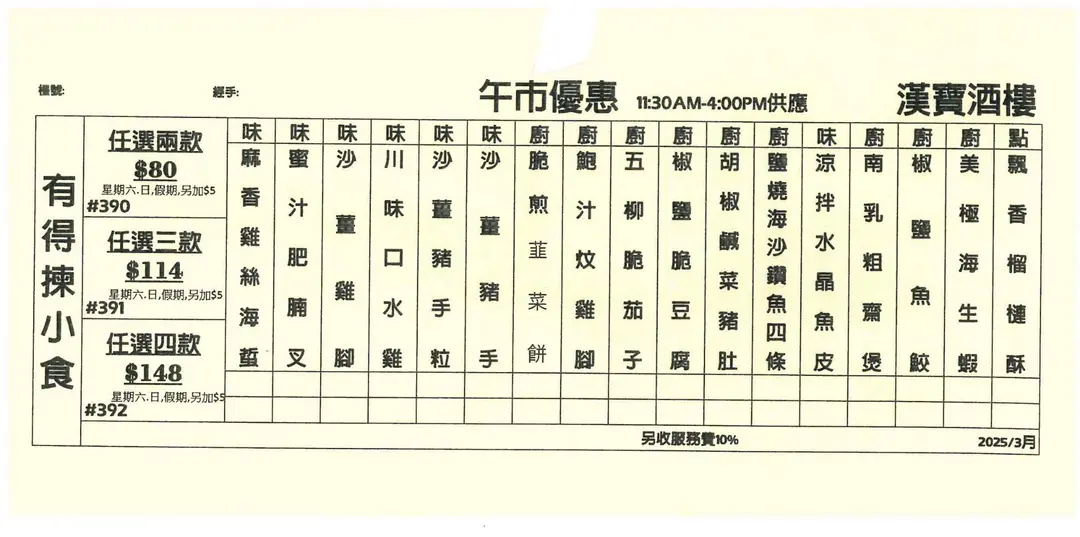 檯號:
經手:
午市優惠 11:30AM-4:00PM供應
漢寶酒樓
有得揀小食
任選兩款
$80
星期六.日,假期,另加$5
#390
任選三款
$114
星期六.日,假期,另加$5
#391
任選四款
$148
星期六.日,假期,另加$5
#392
味 麻香雞絲海蜇
味 蜜汁肥腩叉
味 沙薑雞腳
味 川味口水雞
味 沙薑豬手粒
味 沙薑豬手
廚 脆煎韮菜餅
廚 鮑汁炆雞腳
廚 五柳脆茄子
廚 椒鹽脆豆腐
廚 胡椒鹹菜豬肚
廚 鹽燒海沙鑽魚四條
味 涼拌水晶魚皮
廚 南乳粗齋煲
廚 椒鹽魚餃
廚 美極海生蝦
點 飄香榴槤酥
另收服務費10%
2025/3月